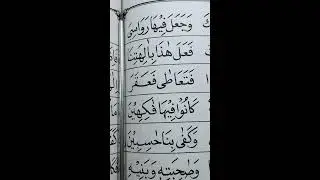 وَجَعَلَ فِيْهَا رَوَاسِىَ
فَعَلَ هٰذَا بِاٰلِهَتِنَا
فَتَعَاطٰى فَعَقَرَ
كَانُوْا فِيْهَا فٰكِهِيْنَ
وَكَفٰى بِنَا حٰسِبِيْنَ
وَصَاحِبَتِهٖ وَبَنِيْهِ